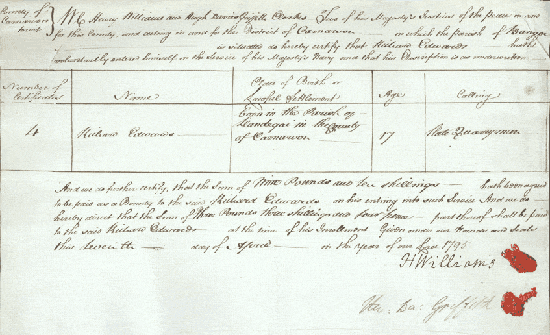 County of
Carnarvon
to wit
We Henry Williams and Hugh Davies Griffith Clerks Two of his Majesty's Justices of the peace in and
for the County, and acting in and for the District of Carnarvon in which the parish of Bangor
is situated do hereby certify that Richard Edwards hath
voluntarily entered himself in the Service of his Majesty's Navy and that his Description is as underwritten
Number of
Certificates
Name
Place of Birth or
Lawful Settlement
Age
Calling
4
Richard Edwards
Born in the Parish of
Llandegai in the County
of Carnarvon
17
Slate Quarryman
And we do further certify, that the Sum of Nine Pounds and ten shillings hath been agreed
to be paid as a Bounty to the said Richard Edwards on his entering into such Service And we do
hereby direct that the Sum of Three Pounds three shillings and four pence part thereof shall be paid
to the said Richard Edwards at the time of his Inrollment Given under our Hands and Seals
this seventh day of April in the Year of our Lord 1795
H Williams
Hu: Da: Griffith